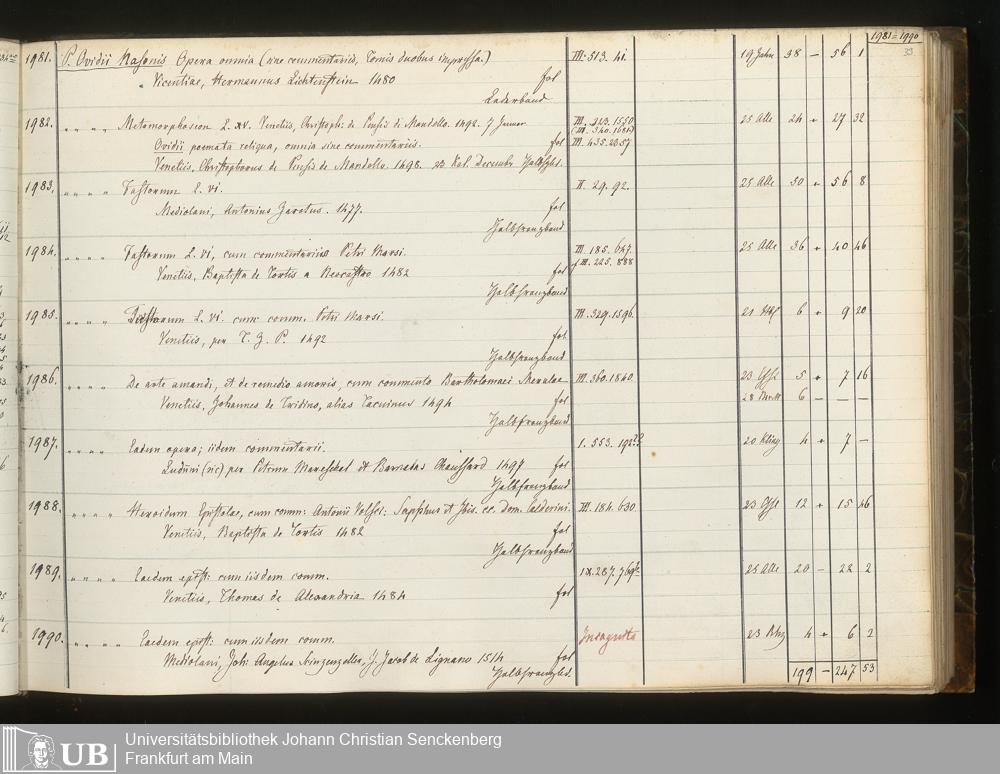 1981=1990
33
1981. P. Ovidii Nasonis Opera omnia (sine commentariis, Tomis duobus impressa.) III. 513. 41. 19 Jahn 38 – 56 1
Vicentiae, Hermannus Lichtenstein 1480 fol
Lederband
1982. " " " " Metamorphoseon L. XV. Venetiis, Christoph: de Pensis de Mandello. 1492. 7 Januar III. 323. 1550 25 Alle 24 + 27 32
(III. 340. 1681)
Ovidii poemata reliqua, omnia sine commentariis. fol III. 435. 2357
Venetiis, Christophorus de Pensis de Mandello. 1498. 23 Kal. Decembr Halbfzbd.
1983. " " " " Fastorum L. vi. II. 29. 92. 25 Alle 50 + 56 8
Mediolani, Antonius Zarotus. 1477. fol
Halbfranzband
1984. " " " " Fastorum L. vi, cum commentariis Petri Marsi. III. 185. 647. 25 Alle 36 + 40 46
Venetiis, Baptista de Tortis a 1482 fol III. 225. 888
Halbfranzband
1985. " " " " Fastorum L. vi. cum comm. Petri Marsi. III. 329. 1596. 21 6 + 9 20
Venetiis, per T. Z. P. 1492 fol
Halbfranzband
1986. " " " " De arte amandi, et de remedio amoris, cum commento Bartholomaei Merulae III. 360. 1840. 23 5 + 7 16
Venetiis, Johannes de Tridino, alias Tacuinus 1494 fol 28 6 – – –
Halbfranzband
1987. " " " " Eadem opera; iidem commentarii. I. 553. 20 Kling 4 + 7 –
Luduni (sic) per Petrum Mareschal et Barnabas Chaussard 1497 fol
Halbfranzband
1988. " " " " Heroidum Epistolae, cum comm: Antonii Volsci: Sapphus et Ibis. cc. Dom. Calderini. III. 184. 630. 23 12 + 15 46
Venetiis, Baptista de Tortis 1482 fol
Halbfranzband
1989. " " " " Eaedem epist: cum iisdem comm. IX. 287. 25 Alle 20 – 22 2
Venetiis, Thomas de Alexandria 1484 fol
1990. " " " " Eaedem epist: cum iisdem comm. Incognita 23 4 + 6 2
Mediolani, Joh: Angelus Scinzenzeller, J. Jacob de Lignano 1514 fol
Halbfranzbd.
199 – 247 53
UB
Universitätsbibliothek Johann Christian Senckenberg
Frankfurt am Main